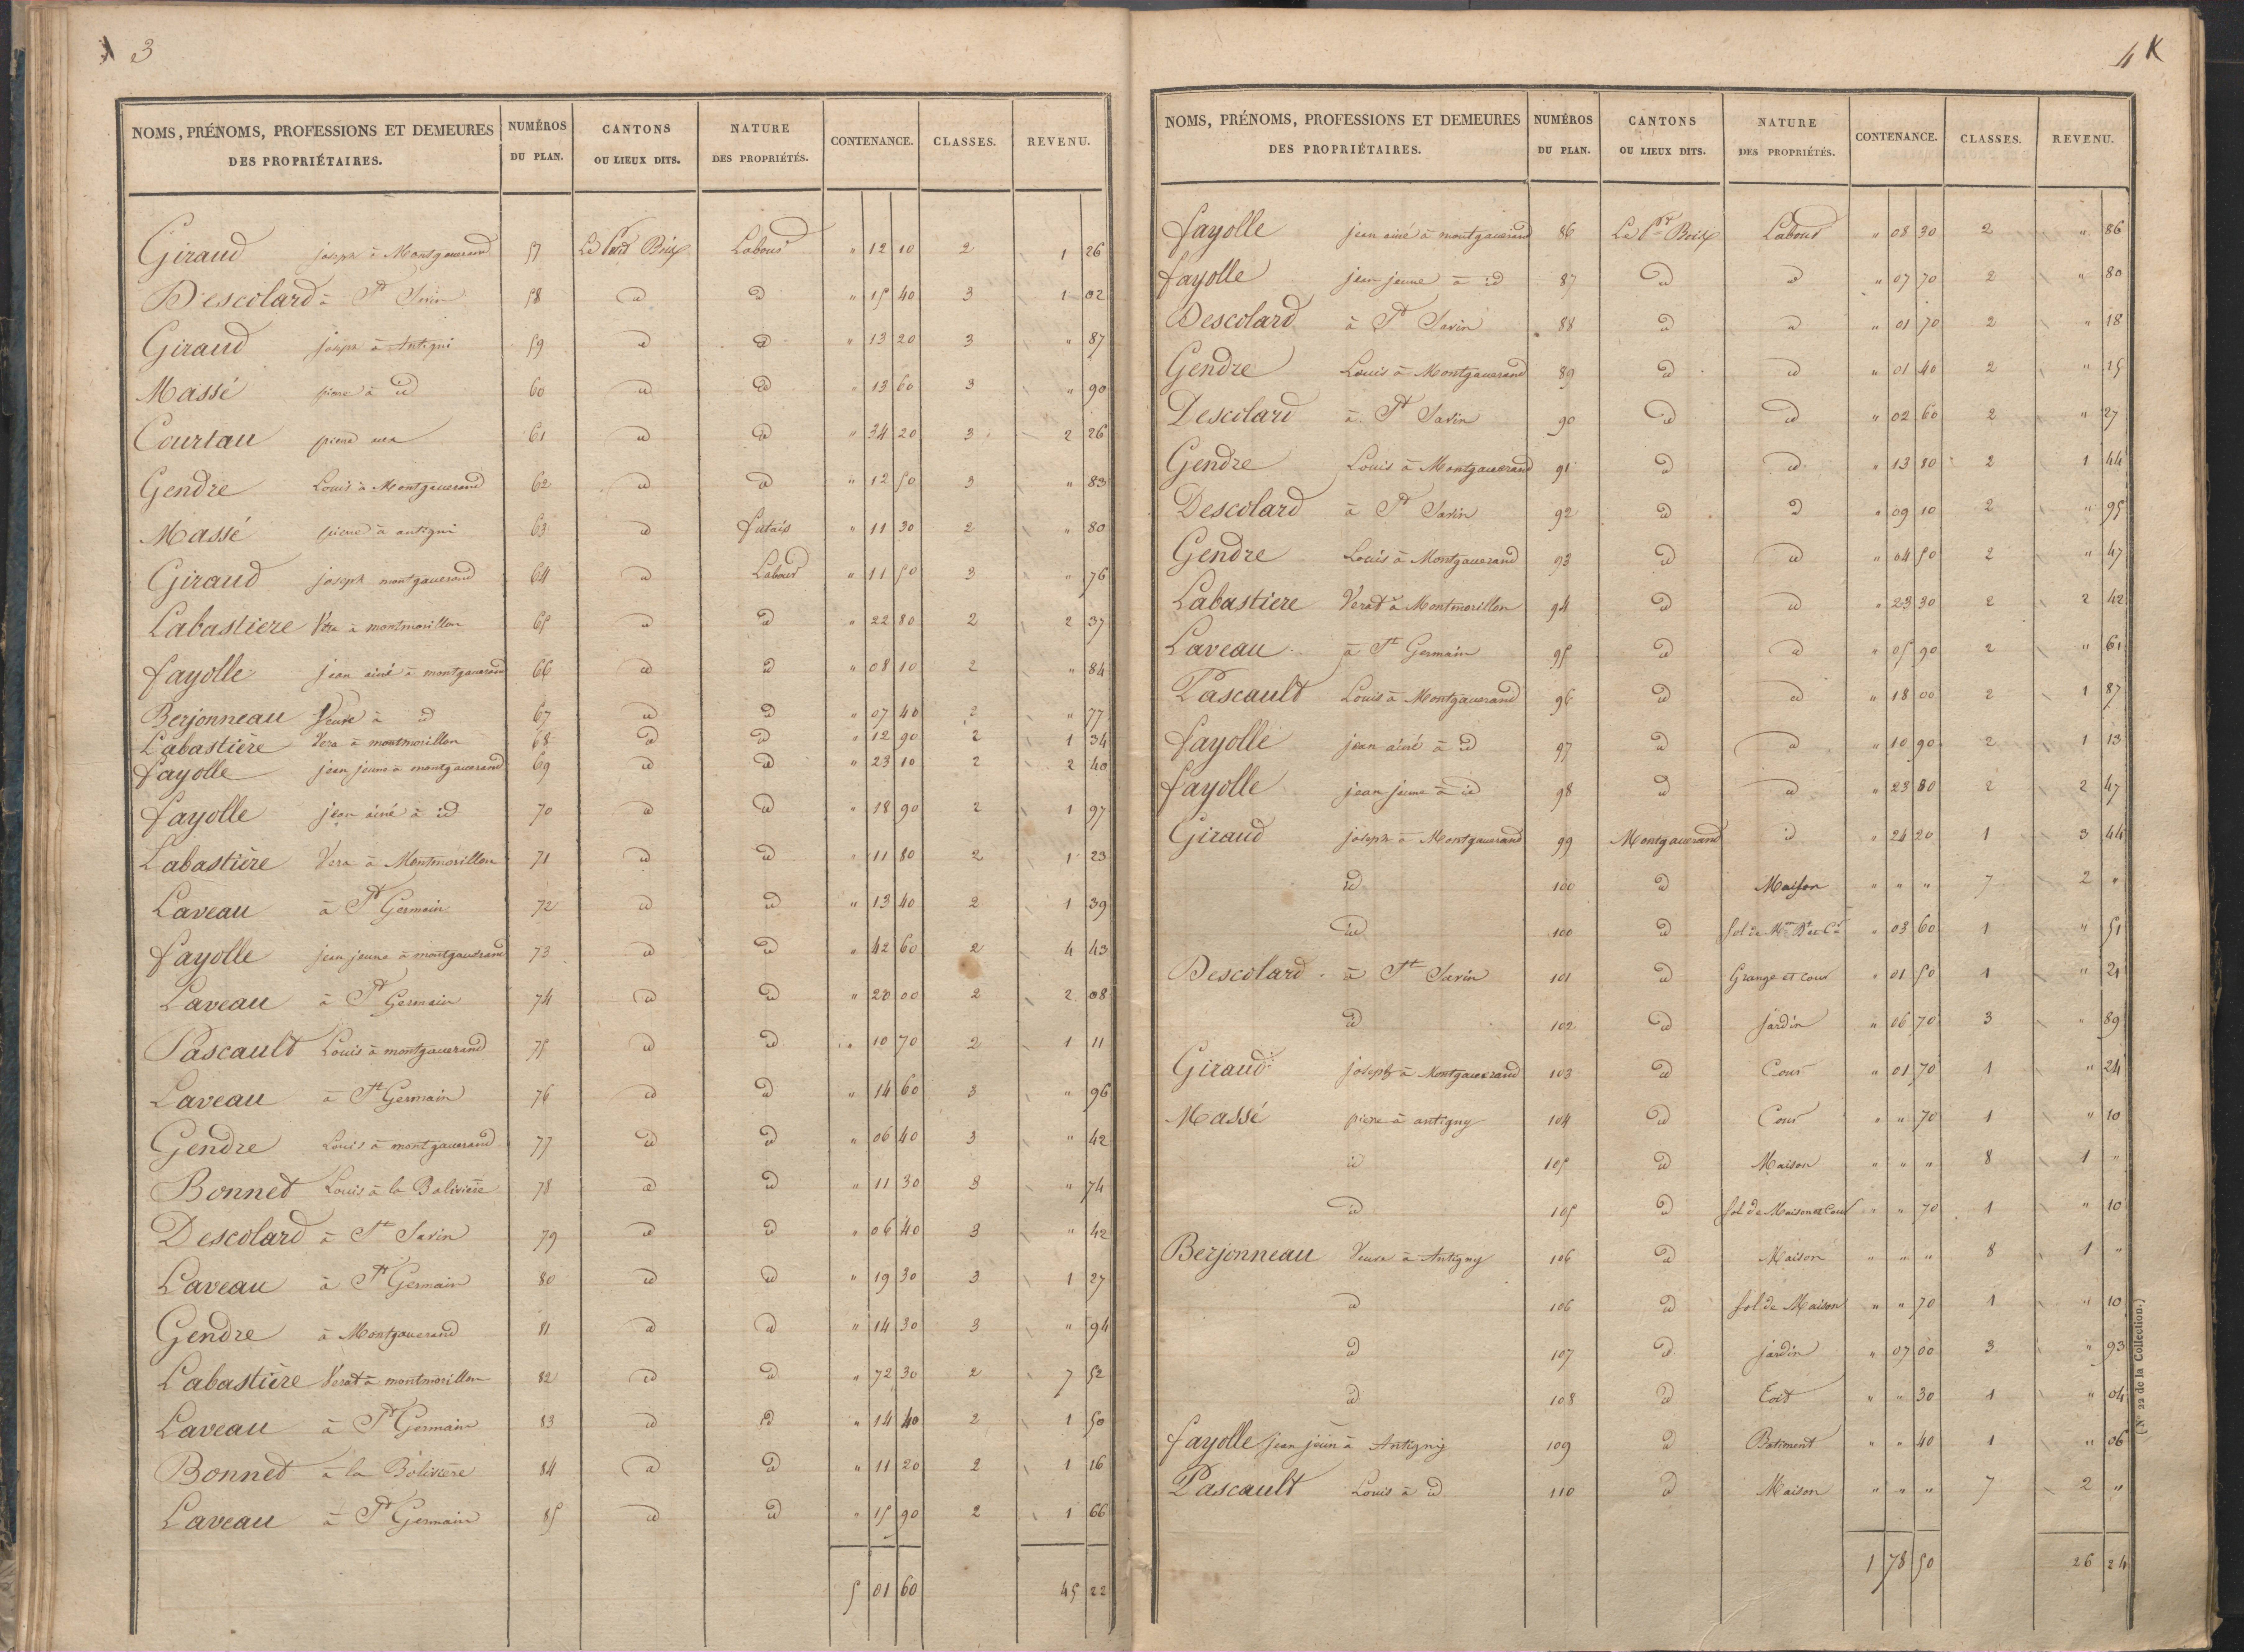 3
NOMS, PRÉNOMS, PROFESSIONS ET DEMEURES DES PROPRIÉTAIRES. NUMÉROS DU PLAN. CANTONS OU LIEUX DITS. NATURE DES PROPRIÉTÉS. CONTENANCE. CLASSES. REVENU.
Giraud joseph à Montgauerand 57 Le Boix Labour " 12 10 2 1 26
Descolard à St Savin 58 id id " 15 40 3 1 02
Giraud joseph à Antigni 59 id id " 13 20 3 " 87
Massé piere à id 60 id id " 13 60 3 " 90
Courtau piere 61 id id " 34 20 3 2 26
Gendre Louis à Montgauerand 62 id id " 12 50 3 " 83
Massé piere à antigni 63 id futais " 11 30 2 " 80
Giraud joseph montgauerand 64 id Labour " 11 50 3 " 76
Labastiere Vera à montmorillon 65 id id " 22 80 2 2 37
fayolle jean ainé à montgauerand 66 id id " 08 10 2 " 84
Berjonneau Veuve à id 67 id id " 07 40 2 " 77
Labastière Vera à montmorillon 68 id id " 12 90 2 1 34
fayolle jean jeune à montgauerand 69 id id " 23 10 2 2 40
fayolle jean ainé à id 70 id id " 18 90 2 1 97
Labastière Vera à Montmorillon 71 id id " 11 80 2 1 23
Laveau à St Germain 72 id id " 13 40 2 1 39
fayolle jean jeune à montgauerand 73 id id " 42 60 2 4 43
Laveau à St Germain 74 id id " 20 00 2 2 08
Pascault Louis à montgauerand 75 id id " 10 70 2 1 11
Laveau à St Germain 76 id id " 14 60 3 " 96
Gendre Louis à montgauerand 77 id id " 06 40 3 " 42
Bonnet Louis à la Bolivière 78 id id " 11 30 3 " 74
Descolard à St Savin 79 id id " 06 40 3 " 42
Laveau à St Germain 80 id id " 19 30 3 1 27
Gendre à Montgauerand 81 id id " 14 30 3 " 94
Labastière Verat à montmorillon 82 id id " 72 30 2 7 52
Laveau à St Germain 83 id id " 14 40 2 1 50
Bonnet à la Bolivière 84 id id " 11 20 2 1 16
Laveau à St Germain 85 id id " 15 90 2 1 66
5 01 60 45 22
4
NOMS, PRÉNOMS, PROFESSIONS ET DEMEURES DES PROPRIÉTAIRES. NUMÉROS DU PLAN. CANTONS OU LIEUX DITS. NATURE DES PROPRIÉTÉS. CONTENANCE. CLASSES. REVENU.
fayolle jean ainé à montgauerand 86 Le Boix Labour " 08 30 2 " 86
fayolle jean jeune à id 87 id id " 07 70 2 " 80
Descolard à St Savin 88 id id " 01 70 2 " 18
Gendre Louis à Montgauerand 89 id id " 01 40 2 " 15
Descolard à St Savin 90 id id " 02 60 2 " 27
Gendre Louis à Montgauerand 91 id id " 13 80 2 1 44
Descolard à St Savin 92 id id " 09 10 2 " 95
Gendre Louis à Montgauerand 93 id id " 04 50 2 " 47
Labastiere Verat à Montmorillon 94 id id " 23 30 2 2 42
Laveau à St Germain 95 id id " 05 90 2 " 61
Pascault Louis à Montgauerand 96 id id " 18 00 2 1 87
fayolle jean ainé à id 97 id id " 10 90 2 1 13
fayolle jean jeune à id 98 id id " 23 80 2 2 47
Giraud joseph à Montgauerand 99 Montgauerand id " 24 20 1 3 44
id 100 id Maison " " " 7 2 "
id 100 id sol de Mon Bt et Cr " 03 60 1 " 51
Descolard à St Savin 101 id Grange et cour " 01 50 1 " 21
id 102 id jardin " 06 70 3 " 89
Giraud joseph à Montgauerand 103 id Cour " 01 70 1 " 24
Massé piere à antigny 104 id Cour " " 70 1 " 10
id 105 id Maison " " " 8 1 "
id 105 id sol de Maison et Cour " " 70 1 " 10
Berjonneau Veuve à Antigny 106 id Maison " " " 8 1 "
id 106 id sol de Maison " " 70 1 " 10
id 107 id jardin " 07 00 3 " 93
id 108 id Toit " " 30 1 " 04
fayolle jean jeun à Antigny 109 id Batiment " " 40 1 " 06
Pascault Louis à id 110 id Maison " " " 7 2 "
1 78 50 26 24
(N° 22 de la Collection.)